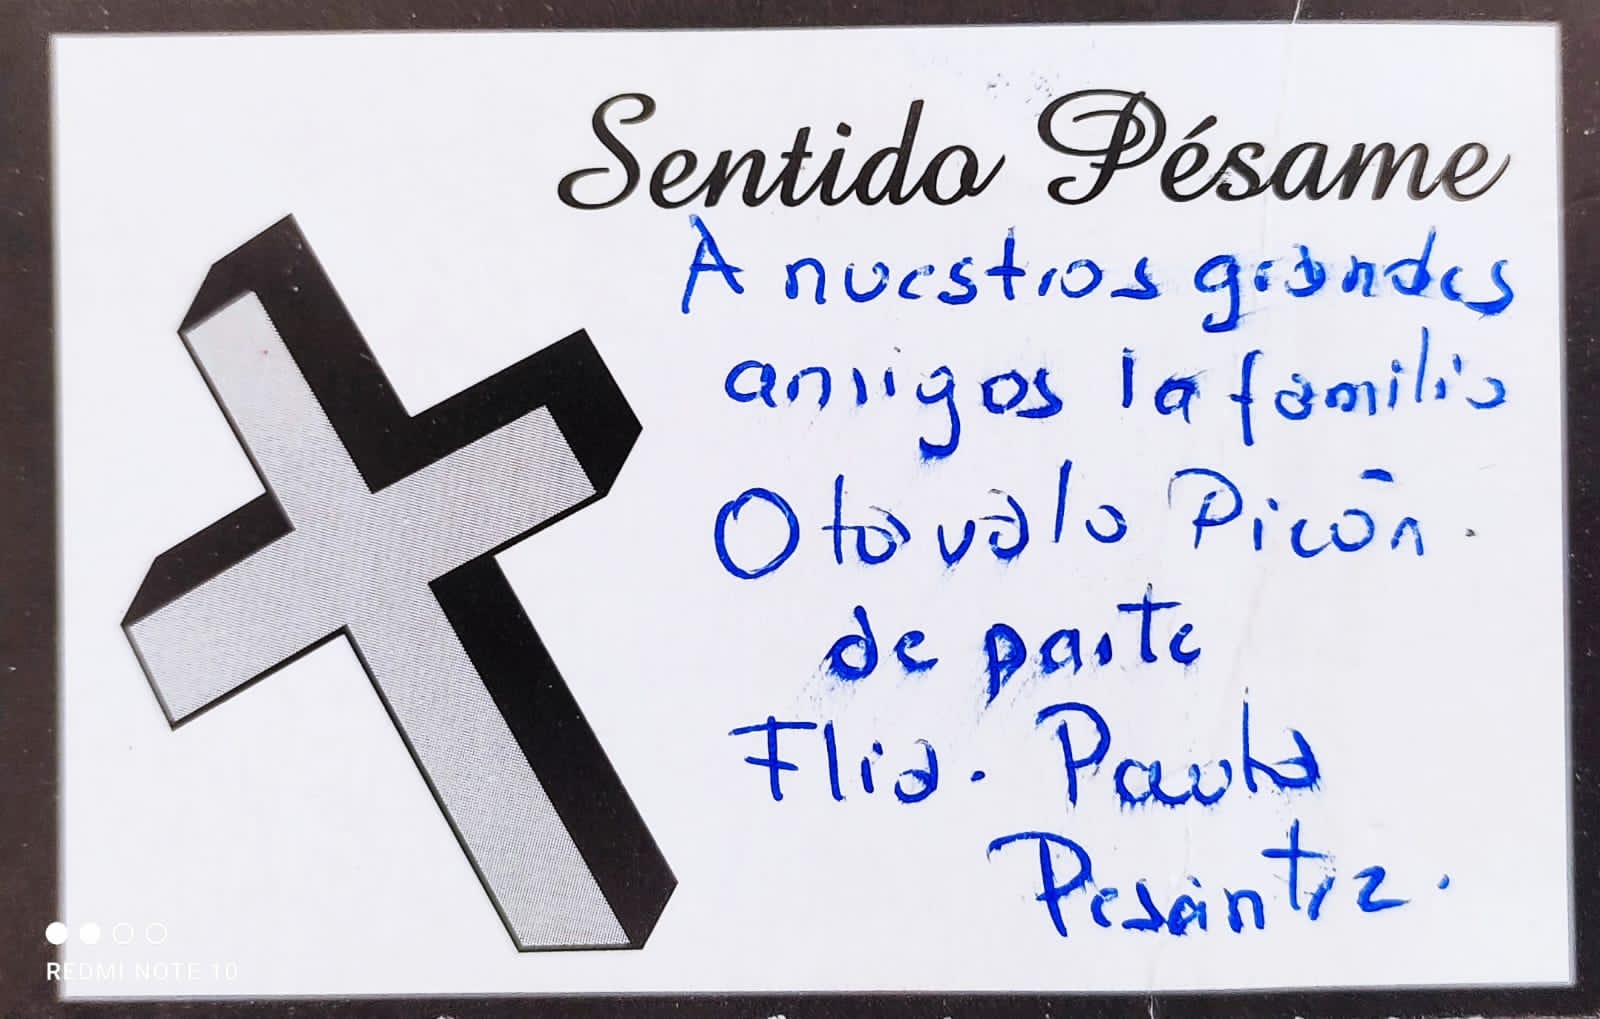 Sentido Pésame
A nuestros grandes
amigos la familia
Otavalo Picón.
de parte
Flia. Pauta
Pesántez.
REDMI NOTE 10